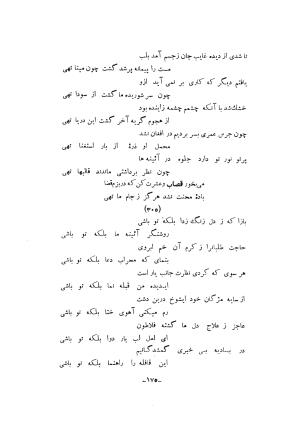 تا شدی از دیده غایب جان زجسم آمد بلب
مست را پیمانه پرشد گشت چون مینا تهی
یافتم دیگر که کاری بر نمی آید ازو
چون سر شوریده ما گشت از سودا تهی
خشك شد با آنکه چشمم چشمه زاینده بود
از هجوم گریه آخر گشت این دریا تهی
چون جرس عمری بسر بردیم در افغان نشد
محمل او ذرۀ از بار استغنا تهی
پرتو نور تو دارد جلوه در آئینه ها
چون نظر برداشتی ماندند قالبها تهی
می بخور قصاب و عشرت کن که در بزم قضا
بادۀ محنت نشد هرگز ز جام ما تهی
(۳۰۵)
بازا که ز دل زنگ زدا بلکه تو باشی
روشنگر آئینه ما بلکه تو باشی
حاجت طلبانرا ز کرم آن خم ابروی
بنمای که محراب دعا بلکه تو باشی
هر سوی که کردی نظرت جانب یار است
ایدیده من قبله نما بلکه تو باشی
از سایه مژگان خود ایشوخ درین دشت
رم میکنی آهوی ختا بلکه تو باشی
عاجز ز علاج دل ما گشته فلاطون
ای لعل لب یار دوا بلکه تو باشی
در بادیه بی خبری گمشدگانیم
این قافله را راهنما بلکه تو باشی
-۱۷۵-